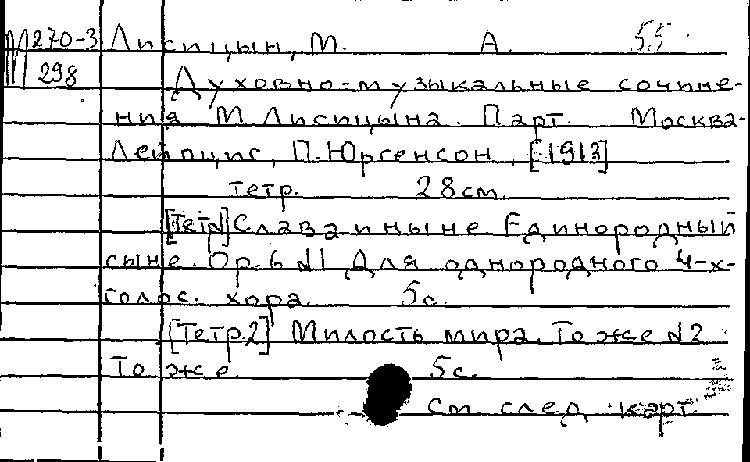 М 270-3 Лисицын, М. А. 55
298 Духовно-музыкальные сочине-
ния М. Лисицына. Парт. Москва-
Лейпциг, П. Юргенсон, [1913]
тетр. 28 см.
[Тетр.1] Слава и ныне. Единородный
сыне. Ор. 6 №1 Для однородного 4-х-
голос. хора. 5 с.
[Тетр.2] Милость мира. То же №2
То же 5 с.
См. след. карт.